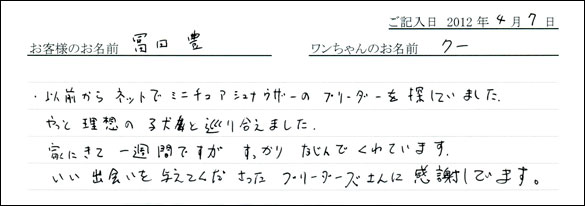 ご記入日 2012 年 4 月 7 日
お客様のお名前 冨田 豊 ワンちゃんのお名前 クー
・以前からネットでミニチュアシュナウザーのブリーダーを探していました。
やっと理想の子犬と巡り合えました。
家にきて一週間ですがすっかりなじんでくれています。
いい出会いを与えてくださったブリーダーズさんに感謝してます。